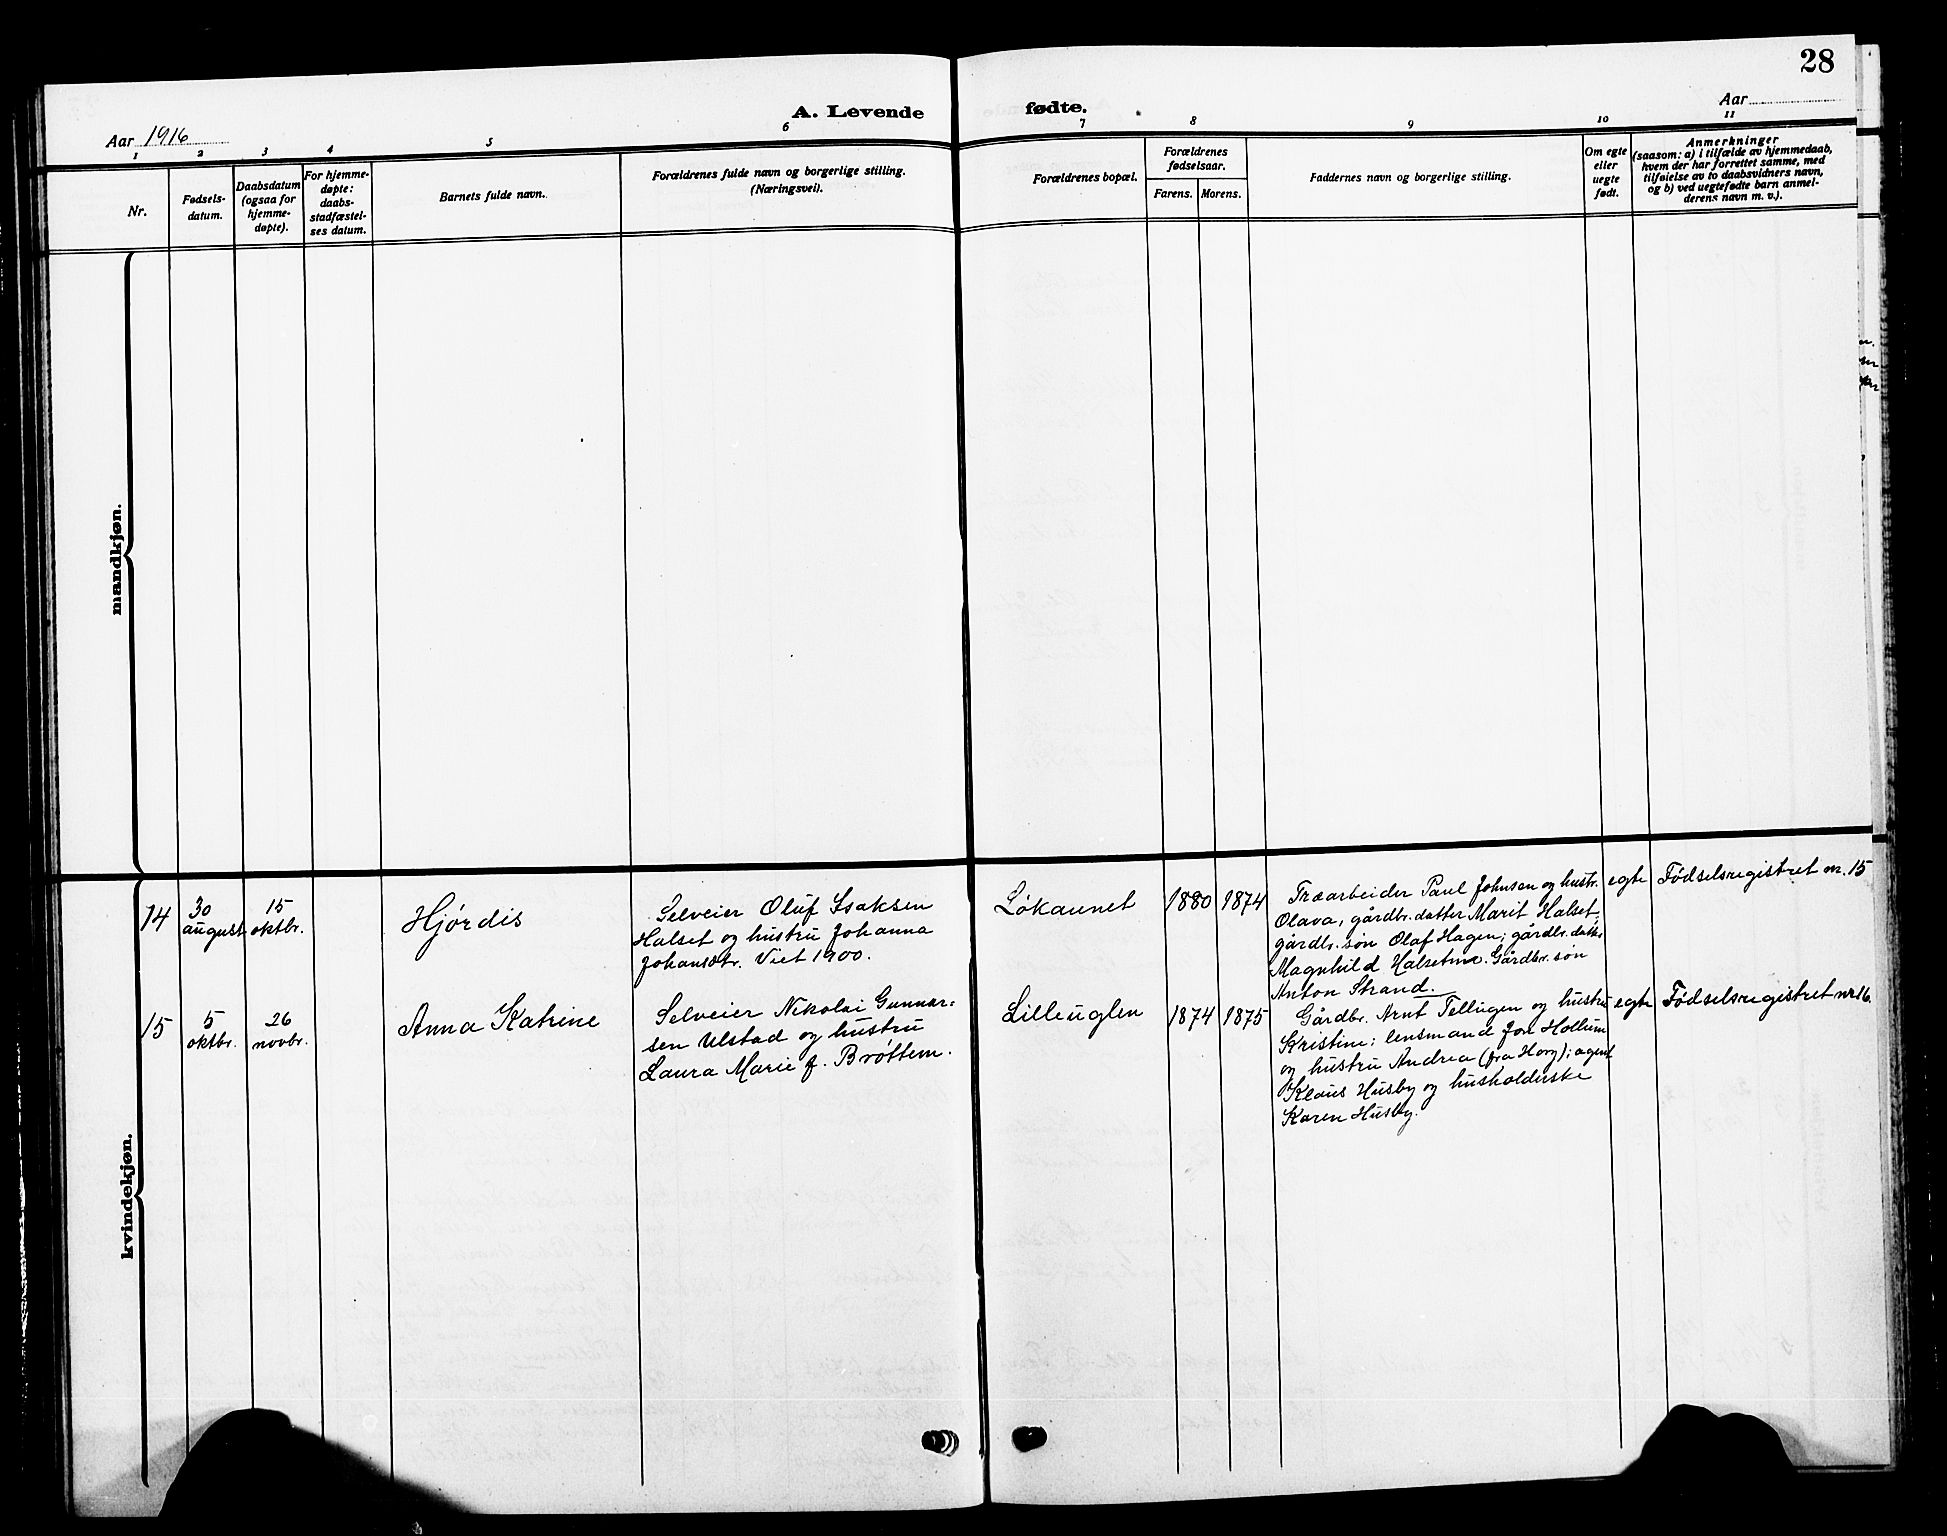 28
A. Levende fødte.
Aar 1916
Aar
1 2 3 4 5 6 7 8 9 10 11
Nr.
Fødsels-
datum.
Daabsdatum
(ogsaa for
hjemme-
døpte).
For hjemme-
døpte:
daabs-
stadfæstel-
ses datum.
Barnets fulde navn.
Forældrenes fulde navn og borgerlige stilling.
(Næringsvei).
Forældrenes bopæl.
Forældrenes
fødselsaar.
Farens. Morens.
Faddernes navn og borgerlige stilling.
Om egte
eller
uegte
født.
Anmerkninger
(saasom: a) i tilfælde av hjemmedaab,
hvem der har forrettet samme, med
tilføielse av to daabsvidners navn,
og b) ved uegtefødte barn anmel-
derens navn m. v.).
mandkjøn.
kvindekjøn.
14
30
august
15
oktbr.
Hjørdis
Selveier Oluf Isaksen
Halset og hustru Johanna
Johansdtr. Viet 1900.
Løkaunet
1880
1874
Træarbeider Paul Johnsen og hustr.
Olava, gårdbr. datter Marit Halset,
gårdbr. søn Olaf Hagen; gårdbr. datt.
Magnhild Halsetmo. Gårdbr. søn
Anton Strand.
egte
Fødselsregistret nr. 15
15
5
oktbr.
26
novbr.
Anna Katrine
Selveier Nikolai Gunnar=
sen Ulstad og hustru
Laura Marie f. Brøttem.
Lilleuglen
1874
1875
Gårdbr. Arnt Tellugen og hustru
Kristine; lensmand Jon Hollum
og hustru Andrea (fra Horg); agent
Klaus Husby og husholderske
Karen Husby.
egte
Fødselsregistret nr 16.